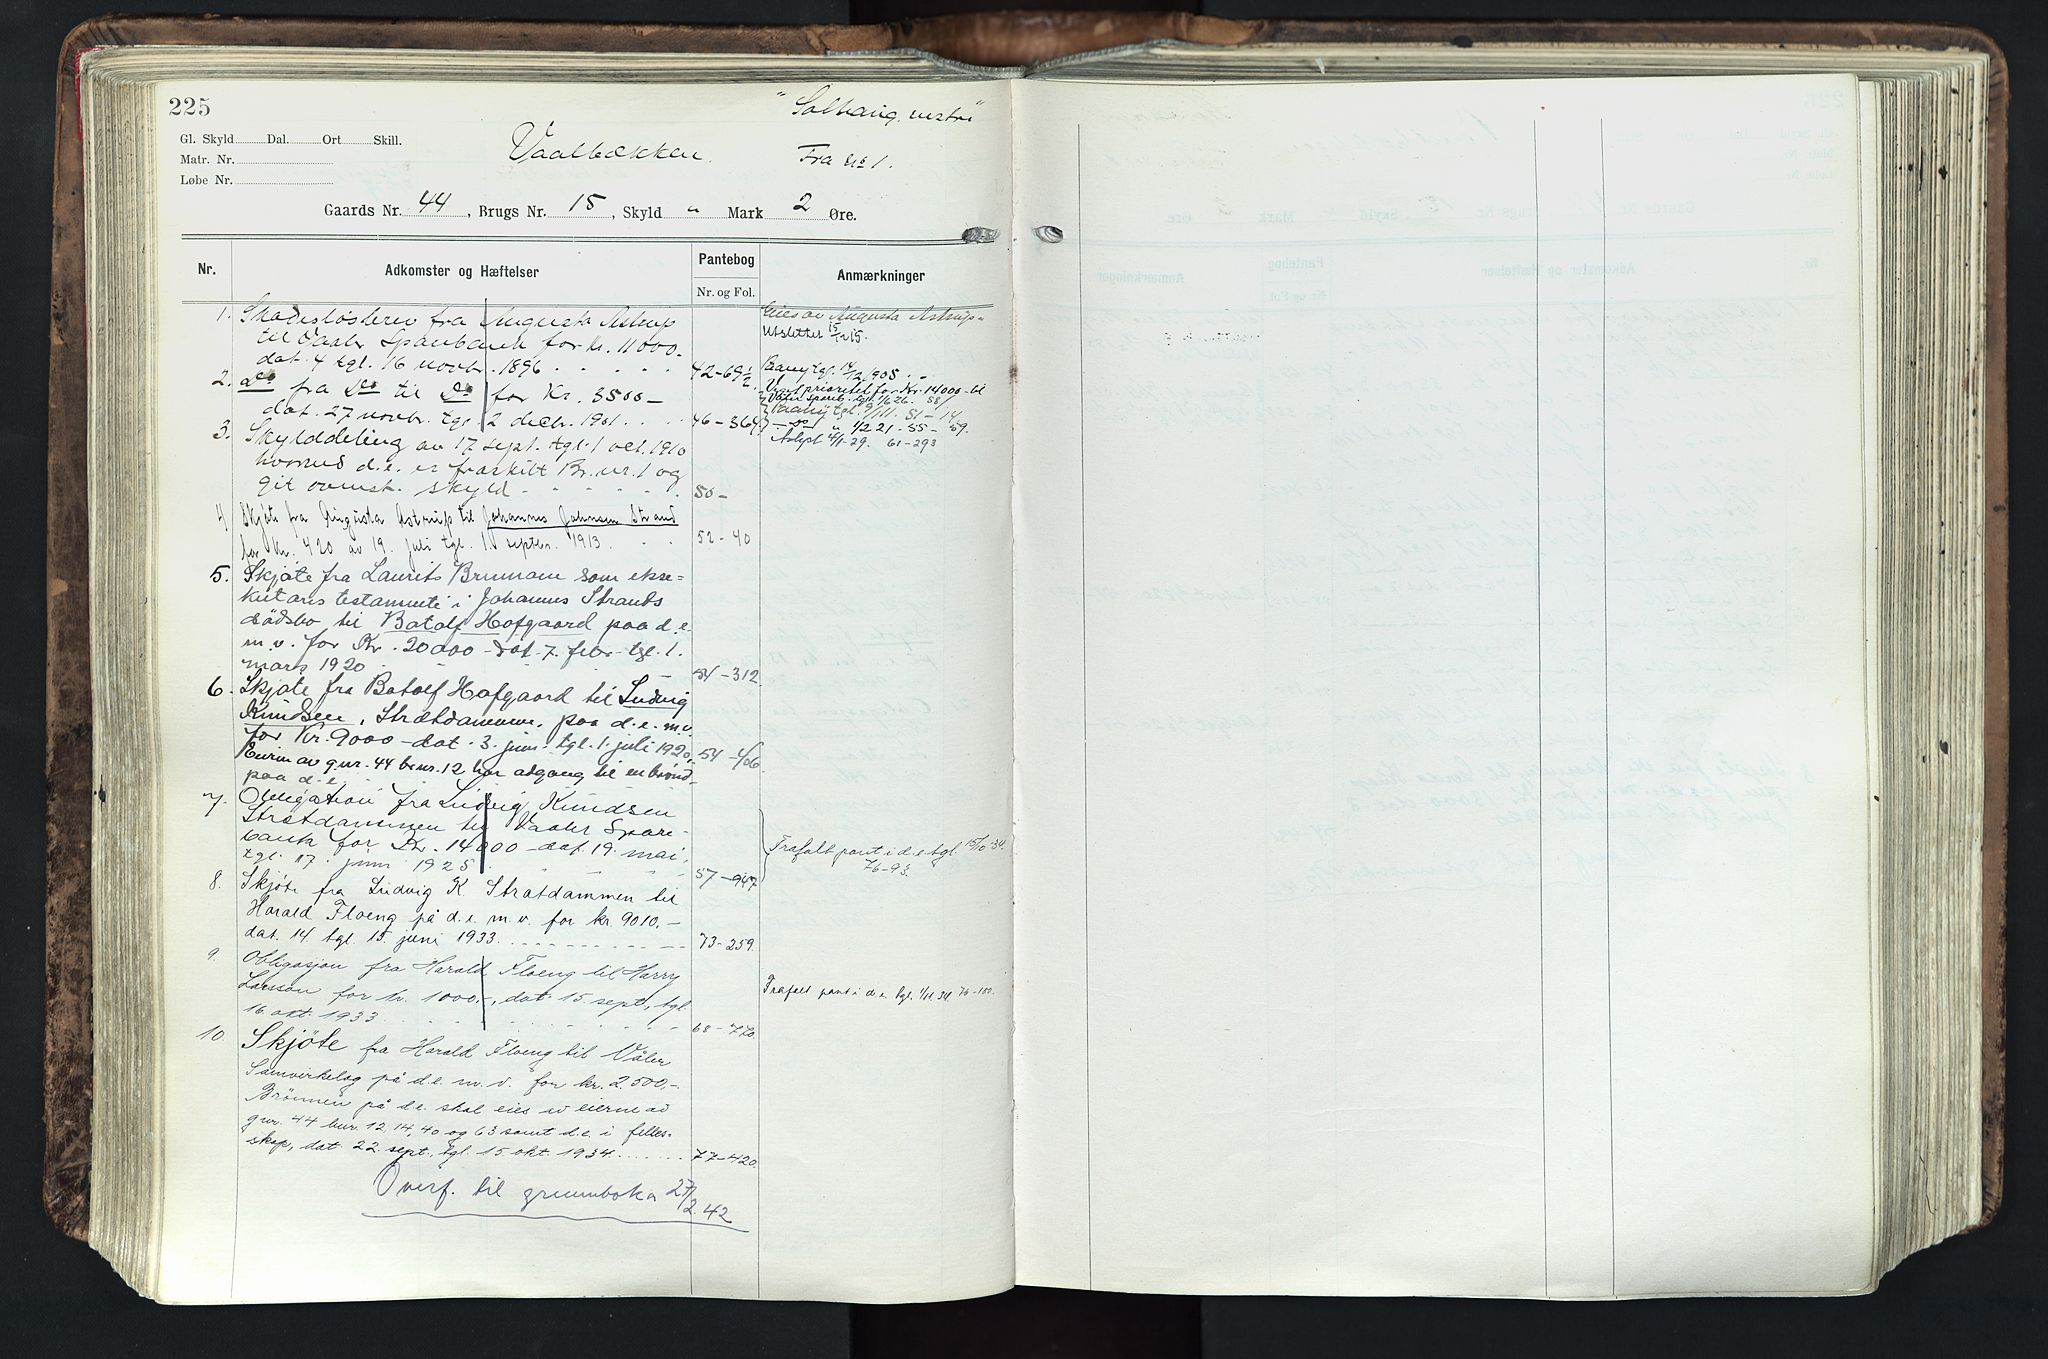 225
"Solhaug, vestre"
Gl. Skyld Dal. Ort Skill.
Vaalbækken.
Fra No 1.
Matr. Nr.
Løbe Nr.
Gaards Nr. 44, Brugs Nr. 15, Skyld " Mark 2 Øre.
Nr.
Adkomster og Hæftelser
Pantebog
Nr. og Fol.
Anmærkninger
1. Skadesløsbrev fra Augusta Astrup
til Vaaler Sparebank for kr. 11000.
dat. 4 tgl. 16 novbr. 1896 42-69½
2. Do fra Do til Do for Kr. 3500-
dat. 27 novbr. tgl. 2 decbr. 1901 46-364
3. Skylddeling av 17 sept. tgl. 1 oct. 1910
hvorved d.e. er fraskilt Br. nr. 1 og
git ovenst. skyld 50-
4 Skjøte fra Augusta Astrup til Johannes Johnsen Strand
for Kr. 420 av 19. juli tgl. 1. septbr. 1913. 52-40
5. Skjøte fra Laurits Brumoen som ekse=
kutors testamenti i Johannes Strands
dødsbo til Botolf Hofgaard paa d.e.
m.v. for Kr. 20000 - dat. 7. febr. tgl. 1.
mars 1920 54-312.
6. Skjøte fra Botolf Hofgaard til Ludvig
Knudsen, Strætdammen, paa d.e.m.v.
for Kr. 9000 - dat. 3. juni tgl. 1. juli 1920, 54-406
Eieren av gnr. 44 brnr. 12 har adgang til en brønd
paa d.e.
7. Obligation fra Ludvig Knudsen
Stratdammen til Vaaler Spare-
bank for Kr. 14000 - dat. 19. mai,
tgl. 17. juni 1925 57-947
8. Skjøte fra Ludvig K Stratdammen til
Harald Floeng på d.e. m.v. for kr. 9010.-
dat. 14. tgl. 15. juni 1933 73-259.
9. Obligasjon fra Harald Floeng til Harry
Larsson for kr. 1000.-, dat. 15. sept, tgl.
16. okt. 1933 68-770.
10. Skjøte fra Harald Floeng til Våler
Samvirkelag på d.e. m.v. for kr. 2.500.-
Brønnen på d.e. skal eies av eierne av
gnr. 44 bnr. 12, 14, 40 og 63 samt d.e. i felles-
skap, dat. 22. sept. tgl. 15. okt. 1934 77-420.
Overf. til grunnboka 27/2. 42
Eies av Augusta Astrup-
Utslettet 15/12 15.
Paany tgl. 14/12 905
Veat prioritet for Kr. 14000 - til
Paany tgl. 9/1 11. 51-14
- os! " 1/2 21. 55-59.
Avlyst 4/1-29. 61-293
Frafalt pant i d.e. tgl. 15/10-34.
76-93.
Frafalt pant i d.e. tgl. 1/11 34 76-100.